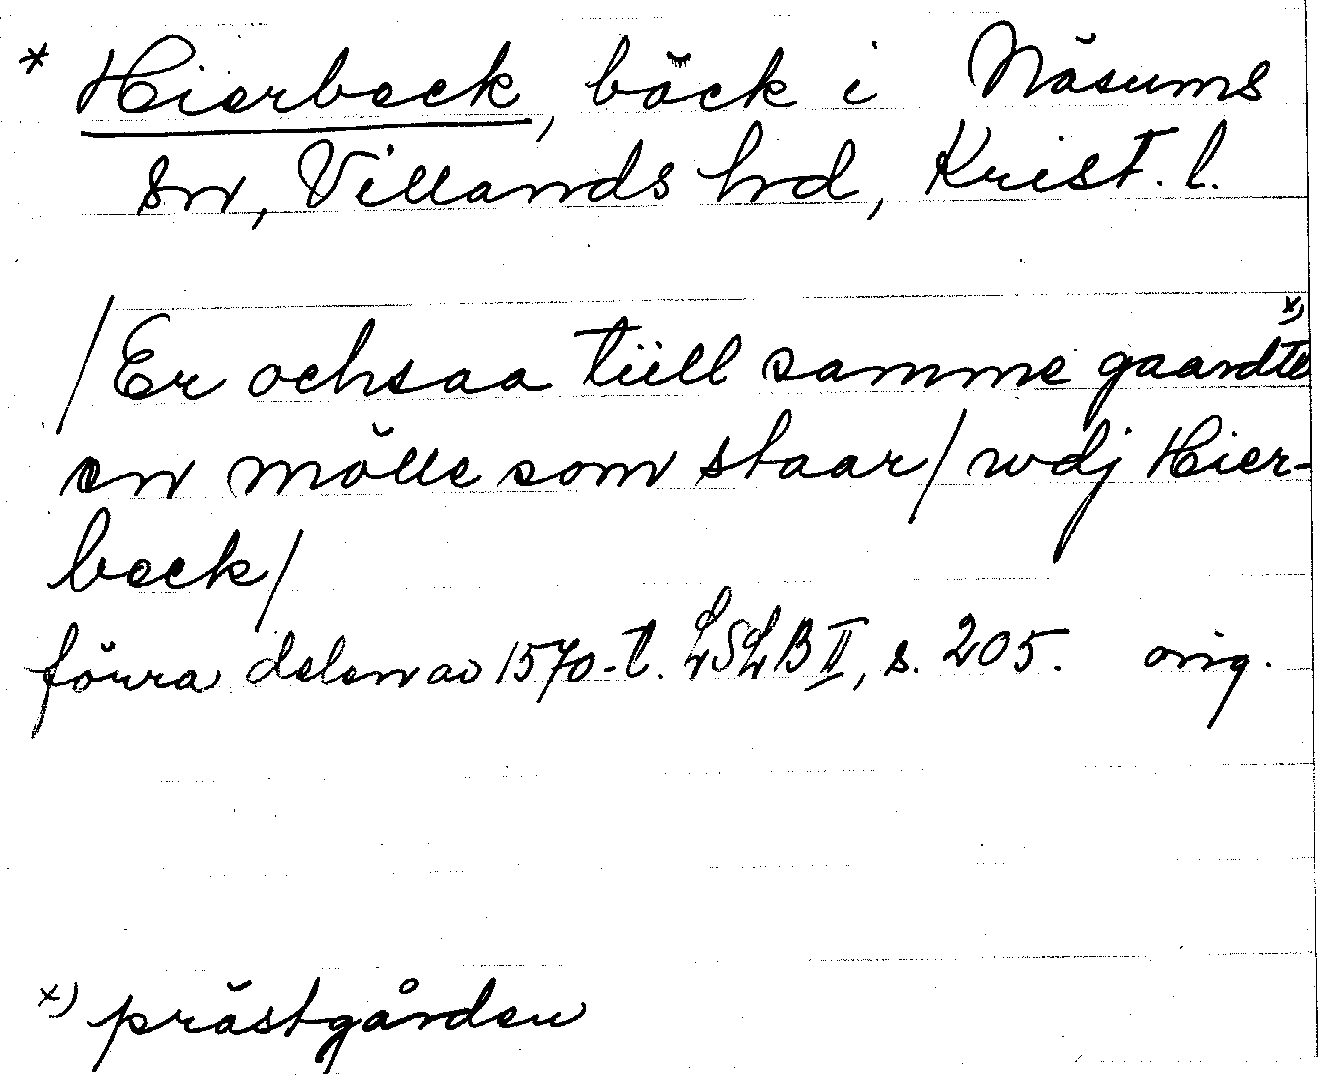 * Hierbeck, bäck i Näsums
sn, Villands hrd, Krist. l.
/Er ochsaa tiill samme gaardte x)
en mölle som staar/ wdj Hier-
beck/
förra delen av 1570-t. LSLB II, s. 205. orig.
x) prästgården